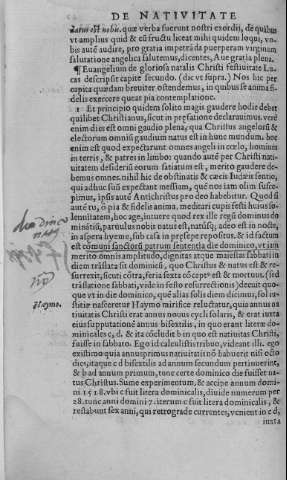 DE NATIVITATE
natus est nobis. quæ verba fuerunt nostri exordij, de quibus
vt amplius quid & eū fructu liceat mihi quidem loqui, vo-
bis autē audire, pro gratia impetrāda puerperam virginum
salutatione angelica salutemus, dicentes, Aue gratia plena.
¶ Euangelium de gloriosa natalis Christi festiuitate Lu-
cas descripsit capite secundo. (dic vt supra.) Nos hic per
capita quædam breuiter ostendemus, in quibus se anima fi-
delis exercere queat pia contemplatione.
1 Et principio quidem solito magis gaudere hodie debet
quilibet Christianus, sicut in præfatione declarauimus. veré
enim dies est omni gaudio plena, qua Christus angelorū &
electorum omniū gaudium natus est in hunc mundum. hoc
enim est quod expectarunt omnes angeli in cœlo, homines
in terris, & patres in limbo: quando autē per Christi natiui-
tatem desiderio eorum satiatum est, merito gaudere de-
bemus omnes. nihil hic de obstinatis & cæcis Iudæis sentio,
qui adhuc suū expectant messiam, qué nos iam olim susce-
pimus, ipsis autē Antichristus pro deo habebitur. Quod si
autē tu, ô pia & fidelis anima, meditari cupis festi huius so-
lennitatem, hoc age, intuere quod rex ille regū dominus do
minātiū, paruulus nobis natus est, natusq; adeo est in nocte,
in aspera hyeme, sub casa in præsepe repositus. & id factum
est cōmuni sanctorū patrum sententia die dominico, vt iam
merito omni amplitudo, dignitas atque maiestas sabbati in
diem trāslata sit dominicū, quo Christus & natus est & re-
surrexit, sicuti cōtra, feria sexta cōcept' est & mortuus. (sed
traslatione sabbati, vide in festo resurrectionis) decuit quo-
que vt in die dominico, qué alias solis diem dicimus, sol iu-
stitiæ nasceretur Haymo mirifice reluctatur, quia annus na
tiuitatis Christi erat annus nouus cycli solaris, & erat iuxta
eius supputationē annus bisextilis, in quo erant literæ do-
minicales c, d. & ita cōcludit b in quo eū natiuitas Christi,
fuisse in sabbato. Ego id calculistis tribuo, videant illi. ego
existimo quia annus primus natiuitatis nō habuerit nisi octo
dies, itaque c d bisextilis ad annum secundum pertinerint,
& b ad annum primum, tunc certe dominico die fuisset na-
tus Christus. Sume experimentum, & accipe annum domi-
ni 1518. vbi c fuit litera dominicalis, diuide numerum per
28. tunc anni domini 7. iterum c fuit litera dominicalis, &
restabunt sex anni, qui retrograde currentes, venient in c d,
iuxta
Haymo.